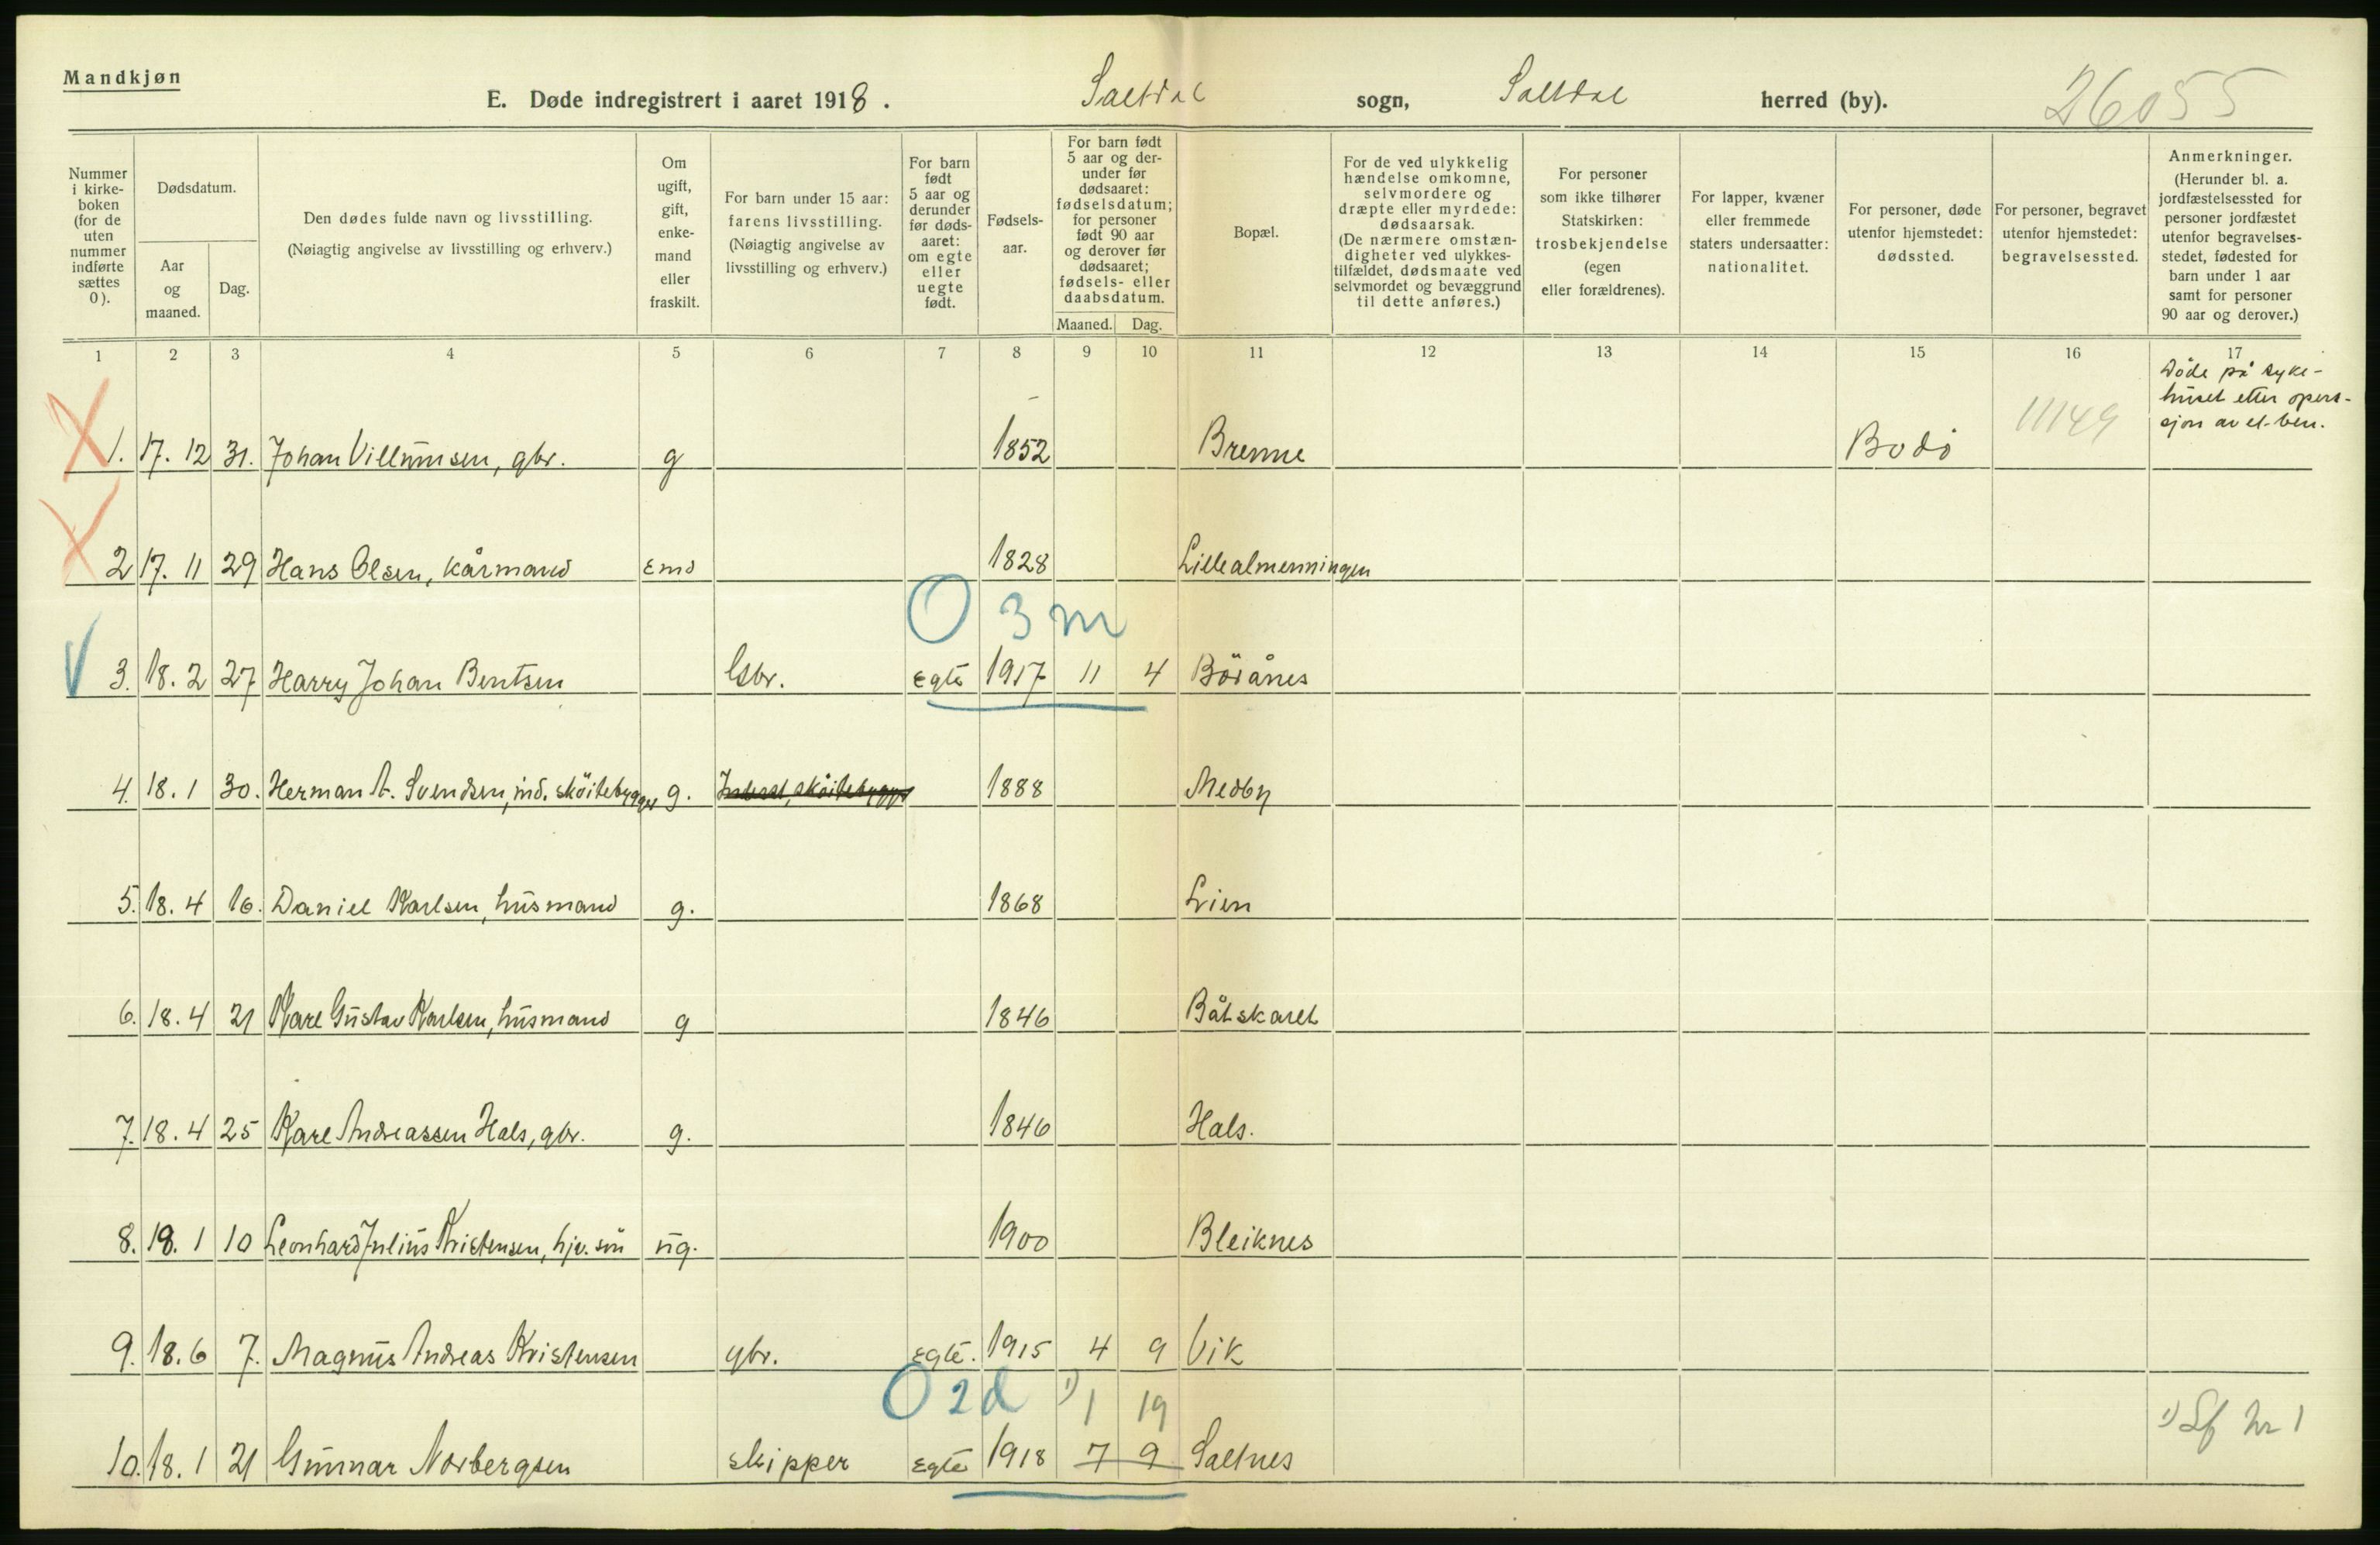 Mandkjøn
E. Døde indregistrert i aaret 1918. Saltdal sogn, Saltdal herred (by). 26055
Nummer
i kirke-
boken
(for de
uten
nummer
indførte
sættes
0).
Dødsdatum.
Aar
og
maaned.
Dag.
Den dødes fulde navn og livsstilling.
(Nøiagtig angivelse av livsstilling og erhverv.)
Om
ugift,
gift,
enke-
mand
eller
fraskilt.
For barn under 15 aar:
farens livsstilling.
(Nøiagtig angivelse av
livsstilling og erhverv.)
For barn
født
5 aar og
derunder
før døds-
aaret:
om egte
eller
uegte
født.
Fødsels-
aar.
For barn født
5 aar og der-
under før
dødsaaret:
fødselsdatum;
for personer
født 90 aar
og derover før
dødsaaret;
fødsels- eller
daabsdatum.
Maaned. Dag.
Bopæl.
For de ved ulykkelig
hændelse omkomne,
selvmordere og
dræpte eller myrdede:
dødsaarsak.
(De nærmere omstæn-
digheter ved ulykkes-
tilfældet, dødsmaate ved
selvmordet og bevæggrund
til dette anføres.)
For personer
som ikke tilhører
Statskirken:
trosbekjendelse
(egen
eller forældrenes).
For lapper, kvæner
eller fremmede
staters undersaatter:
nationalitet.
For personer, døde
utenfor hjemstedet:
dødssted.
For personer, begravet
utenfor hjemstedet:
begravelsessted.
Anmerkninger.
(Herunder bl. a.
jordfæstelsessted for
personer jordfæstet
utenfor begravelses-
stedet, fødested for
barn under 1 aar
samt for personer
90 aar og derover.)
1 2 3 4 5 6 7 8 9 10 11 12 13 14 15 16 17
Døde på syke-
huset etter opera-
sjon av et ben.
1. 17. 12 31. Johan Villumsen, gbr. g 1852 Brenne Bodö 11149
2 17. 11 29 Hans Olsen, kårmand Emd 1828 Lillealmenningen
0 3 m
3. 18. 2 27 Harry Johan Bentsen Gbr. Egte 1917 11 4 Börånes
4. 18. 1 30. Herman A. Svendsen, ind. sköitebygger g. Inderst, sköitebygger 1888 Medby
5. 18. 4 16. Daniel Karlsen, husmand g. 1868 Lien
6. 18. 4 21 Karl Gustav Karlsen, husmand g 1846 Båtskaret
7. 18. 4 25 Karl Andreassen Hals, gbr. g. 1846 Hals.
8. 18. 1 10 Leonhard Julius Kristensen, hjv. sön ug. 1900 Bleiknes
9. 18. 6 7. Magnus Andreas Kristensen gbr. Egte. 1915 4 9 Vik
0 2 d 1) 1 19 1) Lf nr 1
10. 18. 1 21 Gunnar Norbergsen skipper Egte 1918 7 9 Saltnes